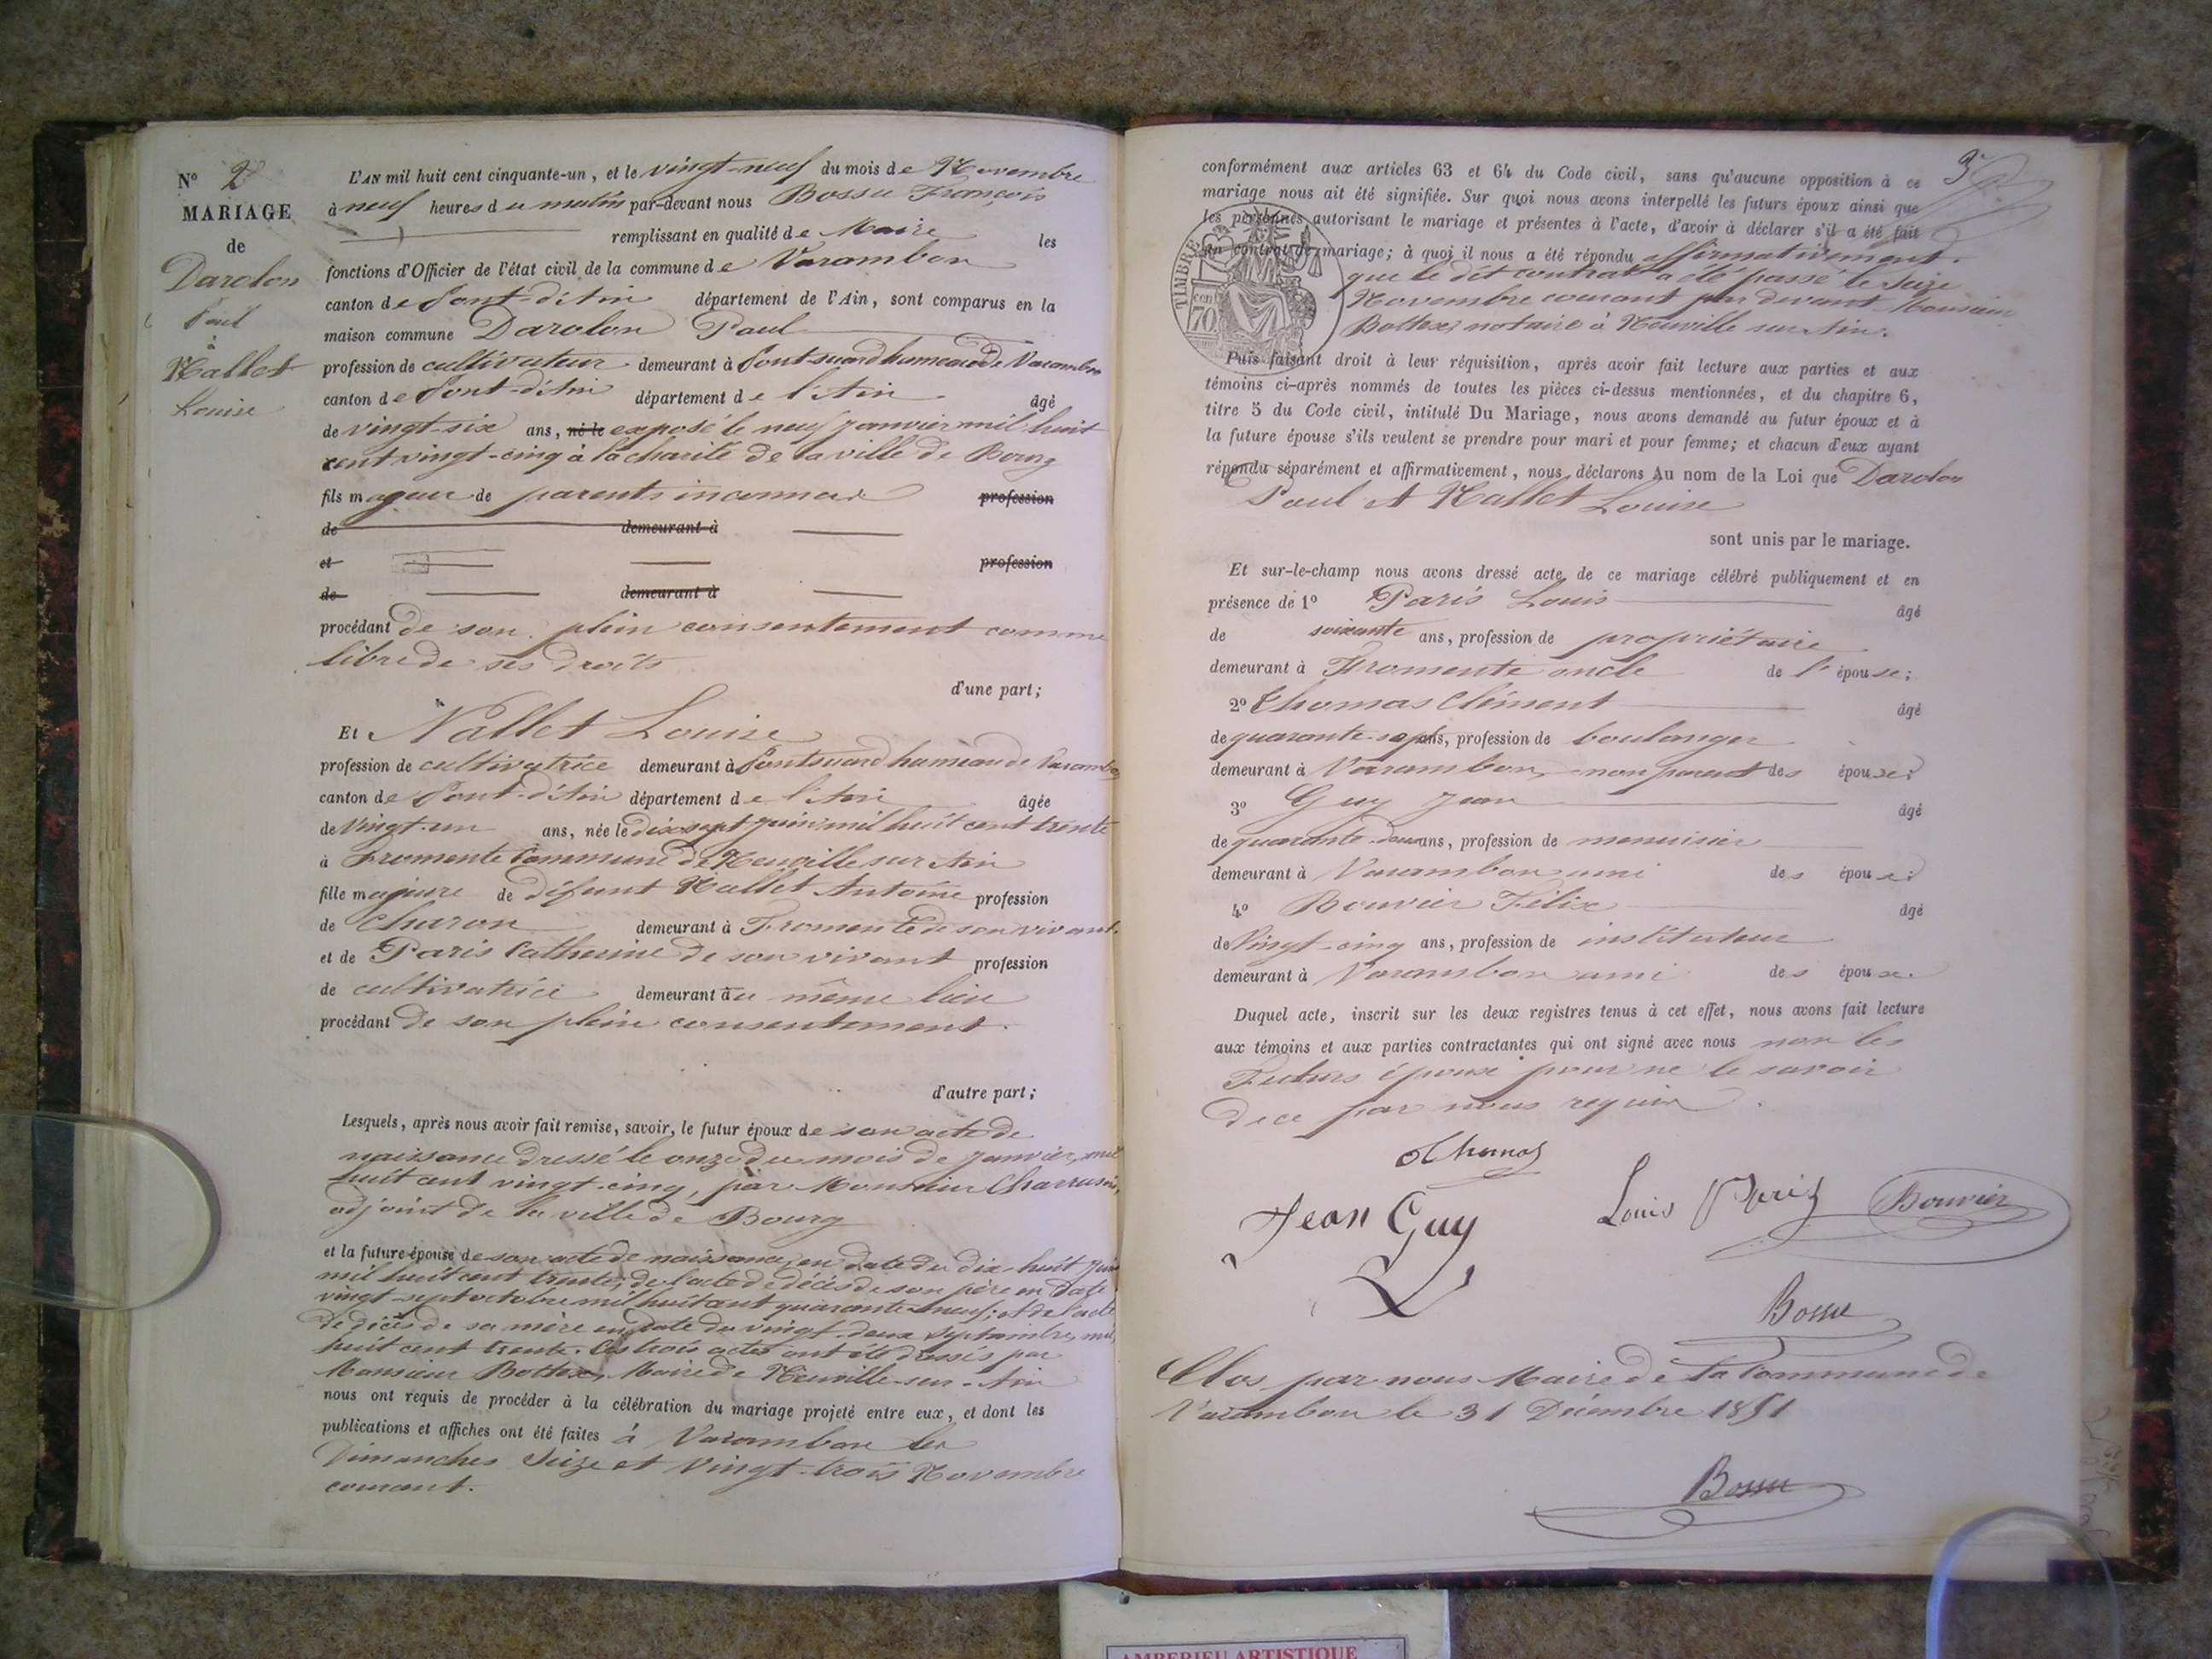 N° 2
MARIAGE
de
Darolon
Paul
à
Nallet
Louise
L'AN mil huit cent cinquante-un, et le vingt-neuf du mois de Novembre
à neuf heures du matin par-devant nous Bossu François
remplissant en qualité de Maire les
fonctions d'Officier de l'état civil de la commune de Varambon
canton de Pont-d'Ain département de l'Ain, sont comparus en la
maison commune Darolon Paul
profession de cultivateur demeurant à hameau de Varambon
canton de Pont-d'Ain département de l'Ain âgé
de vingt-six ans, né le exposé le neuf janvier mil huit
cent vingt-cinq à la charité de la ville de Bourg
fils majeur de parents inconnus profession
de demeurant à
et profession
de demeurant à
procédant de son plein consentement comme
libre de ses droits
d'une part;
Et Nallet Louise
profession de cultivatrice demeurant à hameau de Varambon
canton de Pont-d'Ain département de l'Ain âgée
de vingt-un ans, née le dix-sept juin mil huit cent trente
à Fromente commune de Neuville sur Ain
fille majeure de défunt Nallet Antoine profession
de charon demeurant à Fromente de son vivant
et de Paris Catherine de son vivant profession
de cultivatrice demeurant au même lieu
procédant de son plein consentement.
d'autre part;
Lesquels, après nous avoir fait remise, savoir, le futur époux de son acte de
naissance dressé le onze du mois de janvier, mil
huit cent vingt-cinq, par Monsieur
adjoint de la ville de Bourg
et la future épouse de son acte de naissance, en date du dix-huit juin
mil huit cent trente; de l'acte de décès de son père en date
vingt-sept octobre mil huit cent quarante-neuf; et de l'acte
de décès de sa mère en date du vingt-deux septembre, mil
huit cent trente. Ces trois actes ont été dressés par
Monsieur Bottex, Maire de Neuville-sur-Ain
nous ont requis de procéder à la célébration du mariage projeté entre eux, et dont les
publications et affiches ont été faites à Varambon les
Dimanches Seize et vingt-trois Novembre
courant.
3
conformément aux articles 63 et 64 du Code civil, sans qu'aucune opposition à ce
mariage nous ait été signifiée. Sur quoi nous avons interpellé les futurs époux ainsi que
les personnes autorisant le mariage et présentes à l'acte, d'avoir à déclarer s'il a été fait
un contrat de mariage; à quoi il nous a été répondu affirmativement.
que le dit contrat a été passé le Seize
Novembre courant par devant Monsieur
Bottex notaire à Neuville sur Ain.
TIMBRE
70
Puis faisant droit à leur réquisition, après avoir fait lecture aux parties et aux
témoins ci-après nommés de toutes les pièces ci-dessus mentionnées, et du chapitre 6,
titre 5 du Code civil, intitulé Du Mariage, nous avons demandé au futur époux et à
la future épouse s'ils veulent se prendre pour mari et pour femme; et chacun d'eux ayant
répondu séparément et affirmativement, nous déclarons Au nom de la Loi que Darolon
Paul et Nallet Louise
sont unis par le mariage.
Et sur-le-champ nous avons dressé acte de ce mariage célébré publiquement et en
présence de 1° Paris Louis âgé
de soixante ans, profession de propriétaire
demeurant à Fromente oncle de l'épouse;
2° Thomas Clément âgé
de quarante-sept ans, profession de boulanger
demeurant à Varambon, non parent des époux;
3° Guy Jean âgé
de quarante-deux ans, profession de menuisier
demeurant à Varambon ami des époux;
4° Bouvier Félix âgé
de Vingt-cinq ans, profession de instituteur
demeurant à Varambon ami des époux.
Duquel acte, inscrit sur les deux registres tenus à cet effet, nous avons fait lecture
aux témoins et aux parties contractantes qui ont signé avec nous non les
Futurs époux pour ne le savoir
de ce par nous requis.
Thomas
Jean Guy
Louis Paris
Bouvier
Bossu
Clos par nous Maire de la Commune de
Varambon le 31 Décembre 1851
Bossu
AMBERIEU ARTISTIQUE